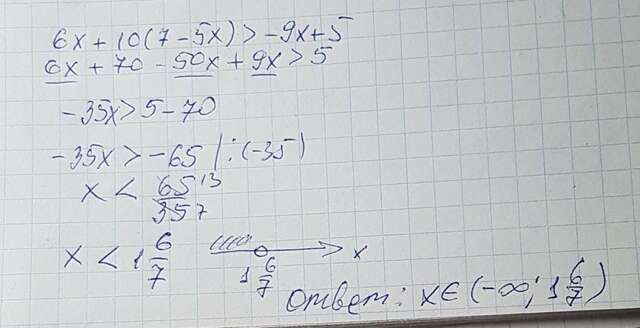 6x + 10(7 - 5x) > -9x + 5
6x + 70 - 50x + 9x > 5
-35x > 5 - 70
-35x > -65 | : (-35)
x < 65/35 13/7
x < 1 6/7 x
1 6/7
Ответ: x ∈ (-∞; 1 6/7)